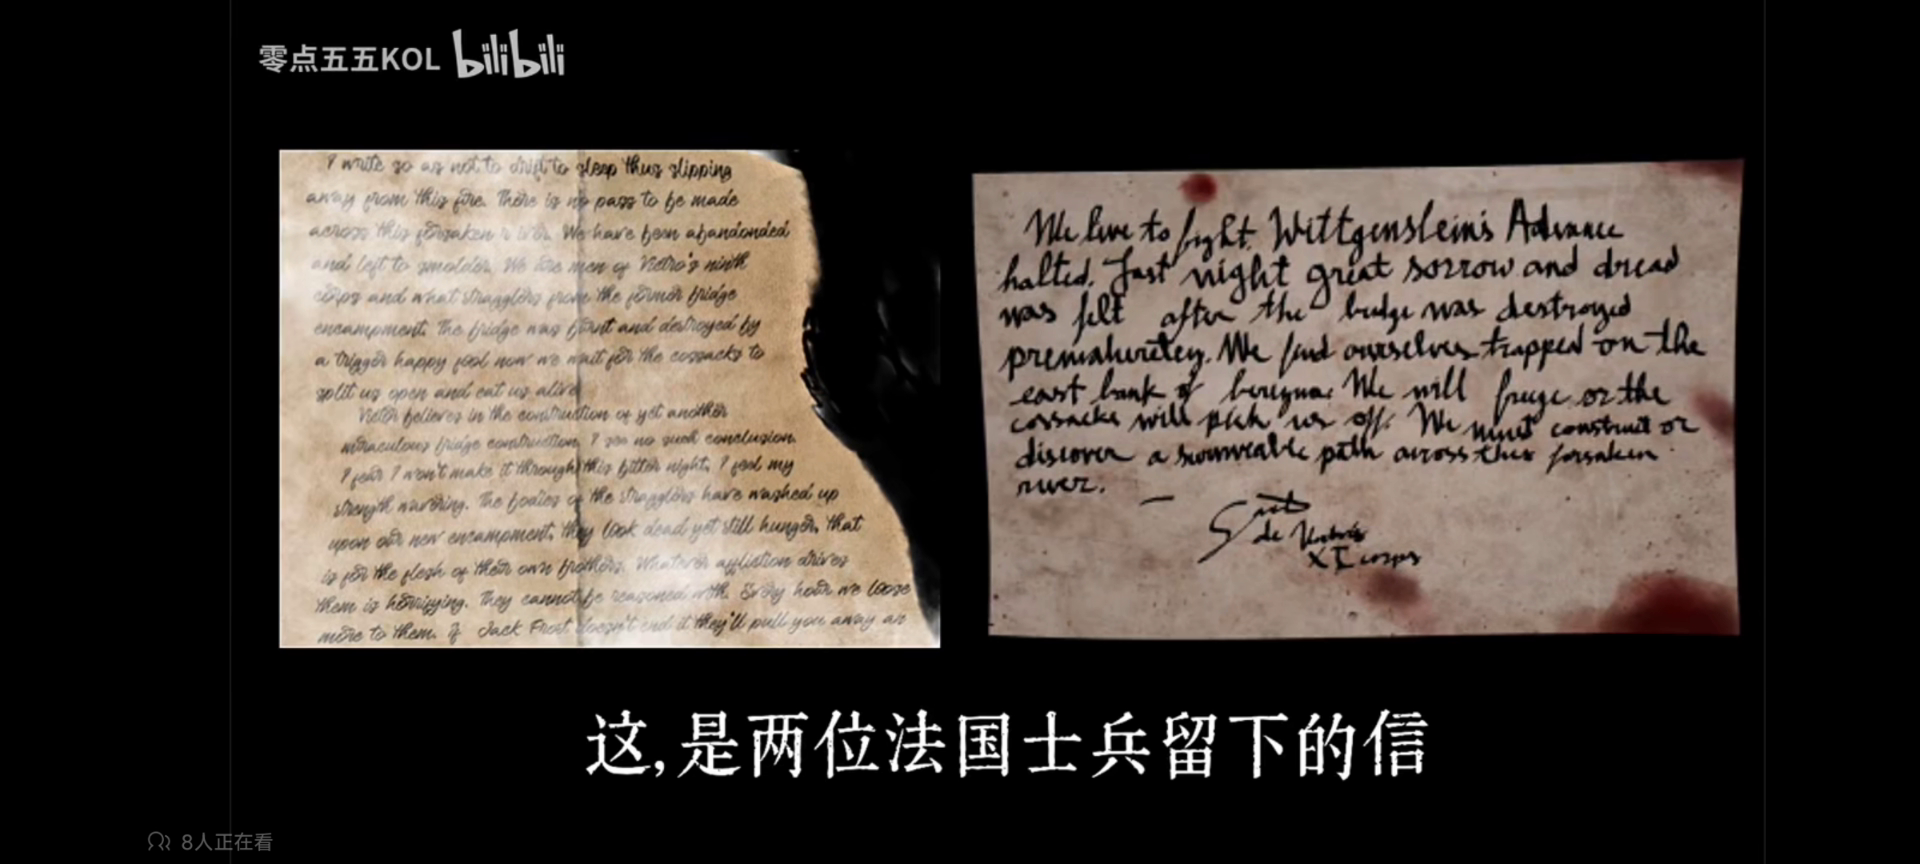 零点五五KOL bilibili
I write so as not to drift to sleep thus slipping
away from this fire. There is no pass to be made
across this forsaken river. We have been abandonded
and left to smolder. We are men of Victro's ninth
corps and what stragglers from the former bridge
encampment. The bridge was burnt and destroyed by
a trigger happy fool now we wait for the cossacks to
split us open and eat us alive
Victor believes in the construction of yet another
miraculous bridge construction. I see no such conclusion.
I fear I won't make it through this bitter night, I feel my
strength wavering. The bodies of the stragglers have washed up
upon our new encampment, they look dead yet still hunger, that
is for the flesh of their own brothers. Whatever affliction drives
them is horrifying. They cannot be reasoned with. Every hour we loose
more to them. If Jack Frost doesn't end it they'll pull you away an
We live to fight. Wittgenstein's Advance
halted. Last night great sorrow and dread
was felt after the bridge was destroyed
prematurely. We find ourselves trapped on the
east bank of We will freeze or the
cossacks will pick us off. We must construct or
discover a path across this forsaken
river.
de
corps
这,是两位法国士兵留下的信
8人正在看